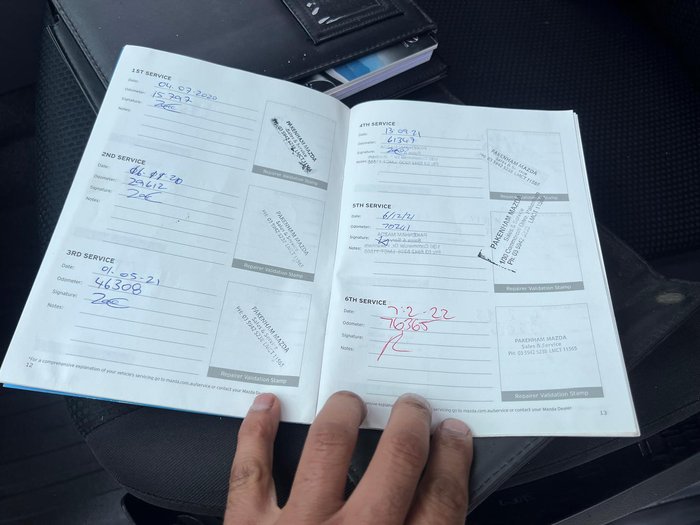 1ST SERVICE
Date: 04.07.2020
Odometer: 15,797
Signature:
Notes:
PAKENHAM MAZDA
Repairer Validation Stamp
2ND SERVICE
Date:
Odometer: 29,612
Signature:
Notes:
PAKENHAM MAZDA
Sales & Service
Repairer Validation Stamp
3RD SERVICE
Date: 01.05-21
Odometer: 46308
Signature:
Notes:
PAKENHAM MAZDA
Sales & Service
PH: 03 5942 5230 LMCT 11565
Repairer Validation Stamp
*For a comprehensive explanation of your vehicle's servicing go to mazda.com.au/service or contact your Mazda Dealer
12
4TH SERVICE
Date: 13.09.21
Odometer: 61349
Signature:
Notes:
PAKENHAM MAZDA
Repairer Validation Stamp
5TH SERVICE
Date: 6/12/21
Odometer: 70241
Signature:
Notes:
PAKENHAM MAZDA
Sales & Service
Repairer Validation Stamp
6TH SERVICE
Date: 7-2-22
Odometer: 76365
Signature:
Notes:
PAKENHAM MAZDA
Sales & Service
PH: 03 5942 5230 LMCT 11565
Repairer Validation Stamp
servicing go to mazda.com.au/service or contact your Mazda Dealer
13